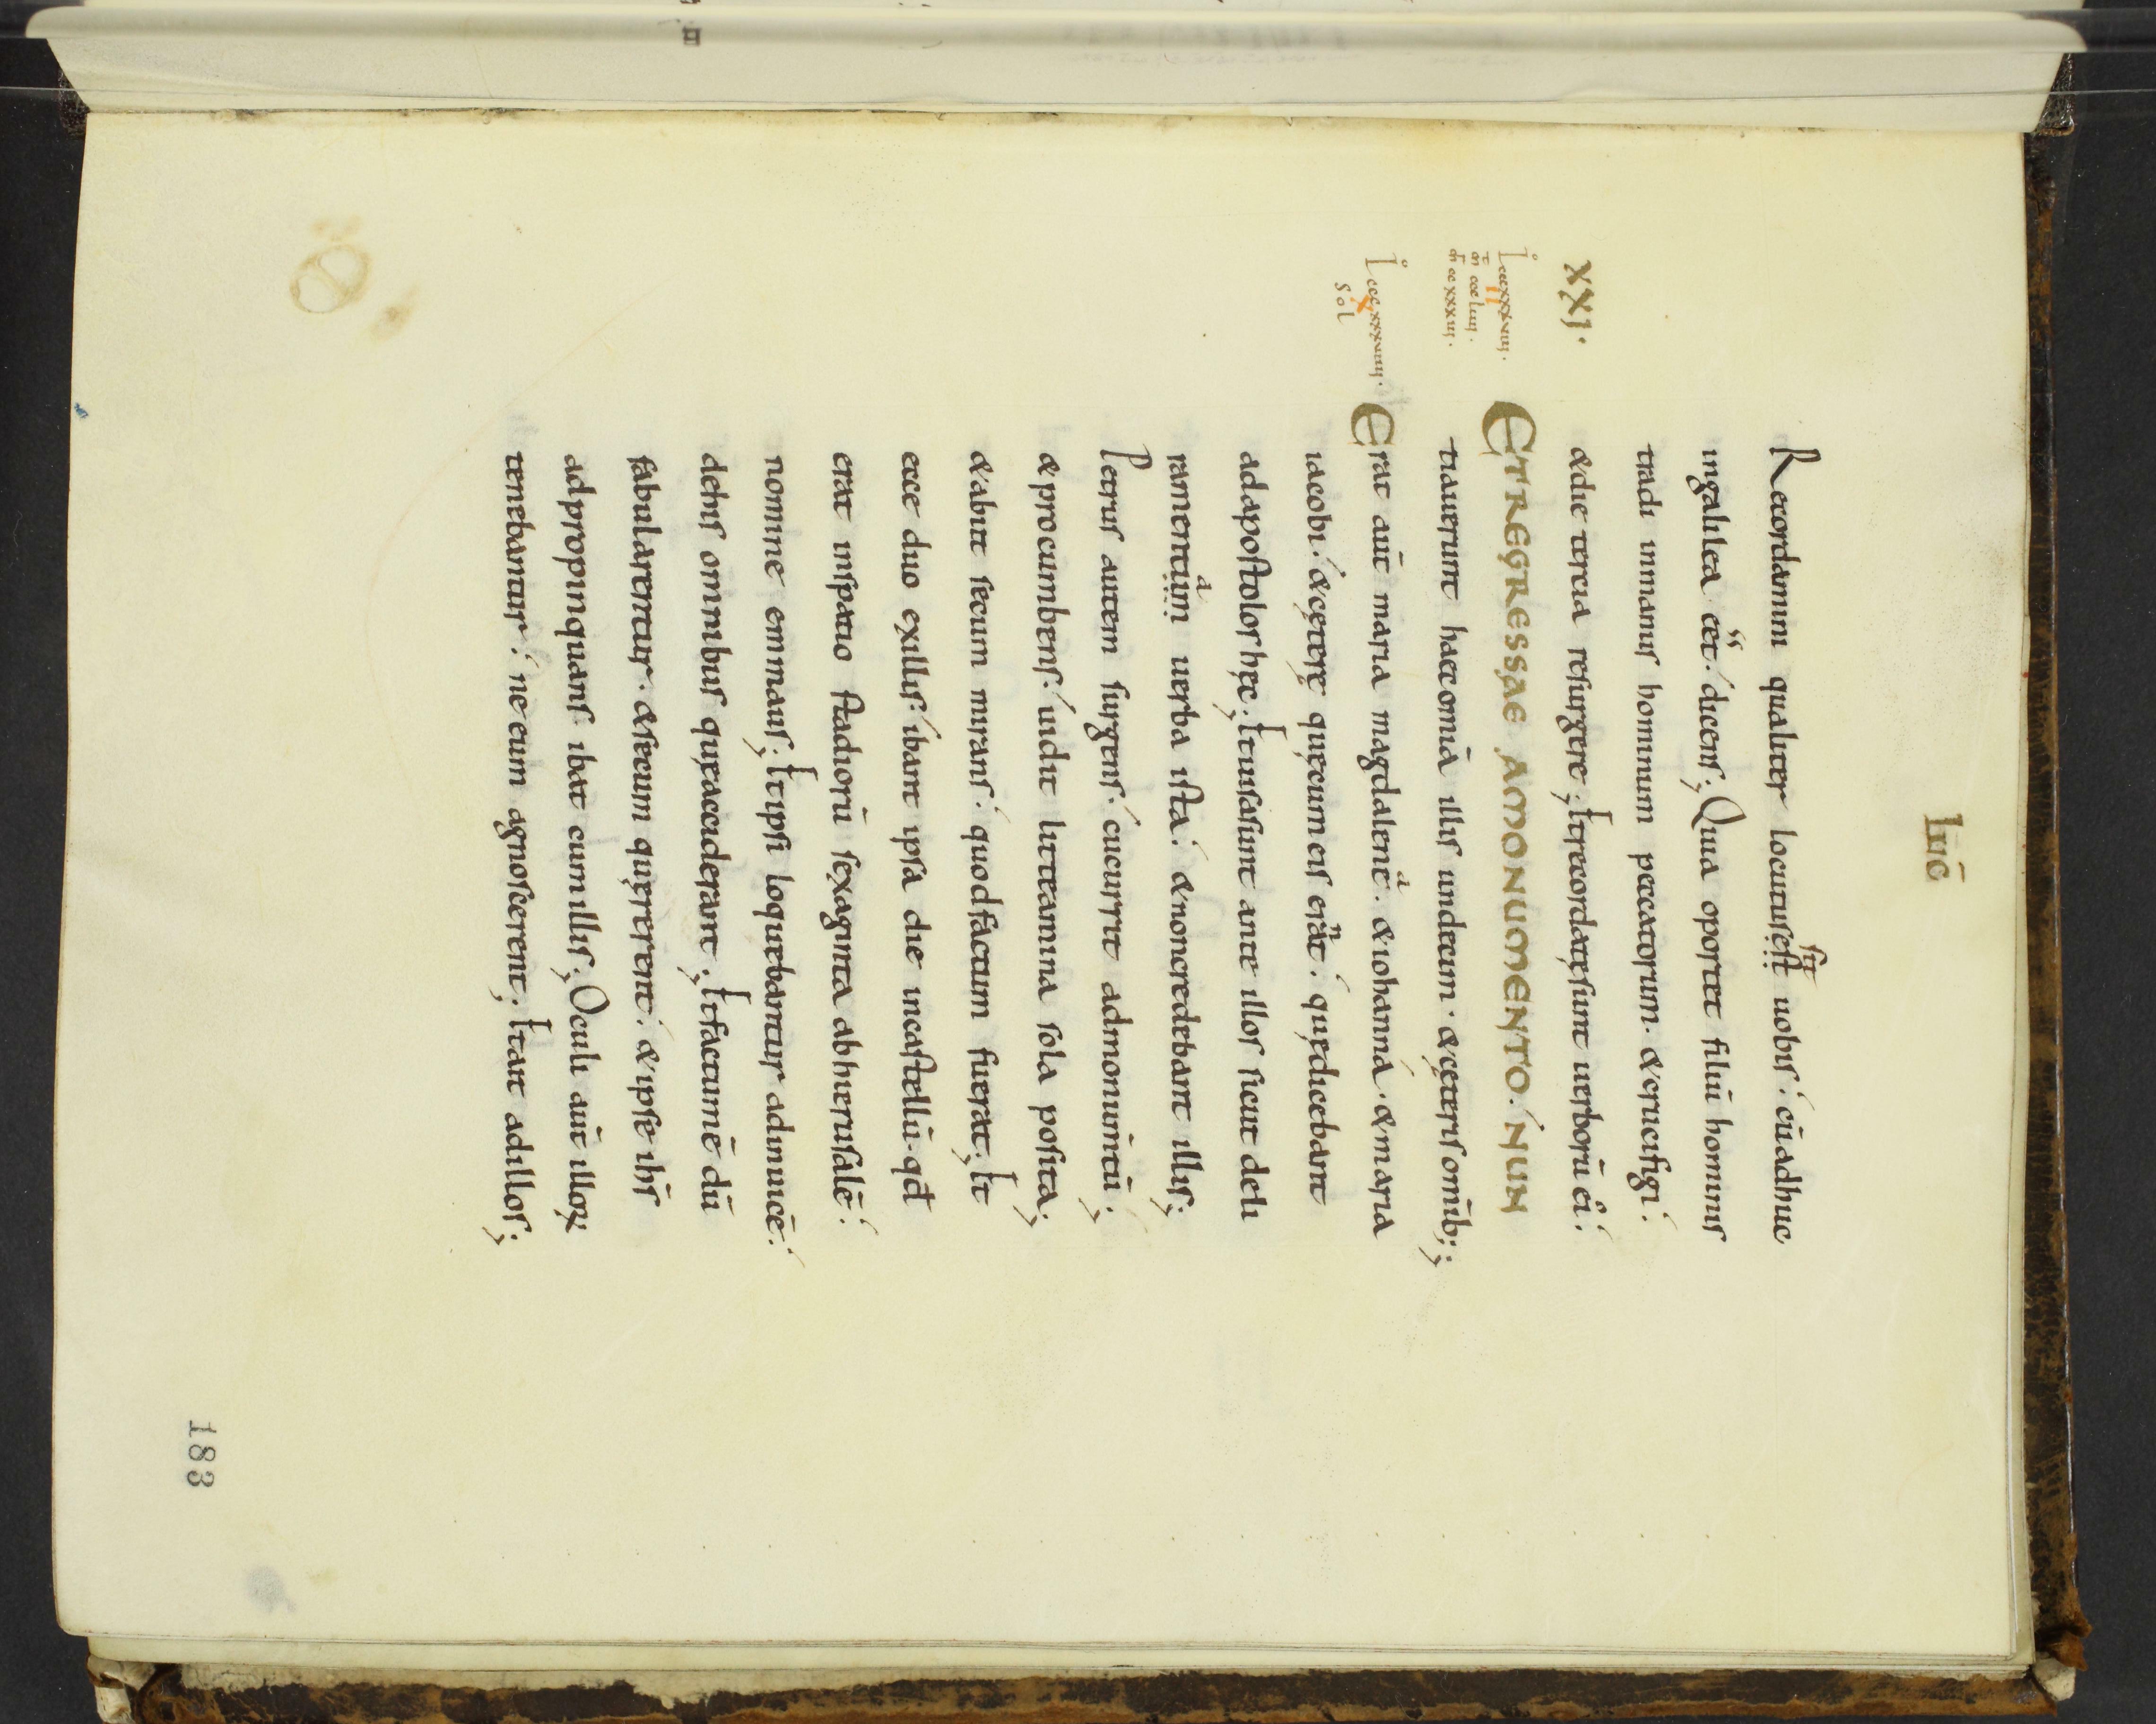 Luc̄
Recordamini qualiter locutusest uobis. cū adhuc
fuer
ingalilea eet. dicens; Quia oportet filiū hominis
ss
tradi inmanus hominum peccatorum. & crucifigi.
XXI.
&die tercia resurgere; Etrecordatęsunt uerborū ei᾽.
ETREGRESSAE AMONUMENTO. NUN
tiauerunt haec omīa illis undecim. &cęteris omīb;;
Erat aut̄ maria magdalene. &iohanna. &maria
a
iacobi. &cęterę quęcum eis erat. quędicebant
n
adapostolos hęc; Etuisasunt ante illos sicut deli
ramentum uerba ista. &noncredebant illis;
a
Petrus autem surgens. cucurrit admonum̄tū;
&procumbens. uidit linteamina sola posita;
&abiit secum mirans. quodfactum fuerat; Et
ecce duo exillis. ibant ipsa die incastellū. qd̄
erat inspatio stadiorū sexaginta abhierusalē.
nomine emmaus; Etipsi loquebantur adinuicē.
dehis omnibus quęacciderant; Etfactumē dū
fabularentur. &secum quęrerent. &ipse ih̄s
adpropinquans ibat cumillis; Oculi aut̄ illoꝝ
tenebantur. ne eum agnoscerent. Etait adillos;
183